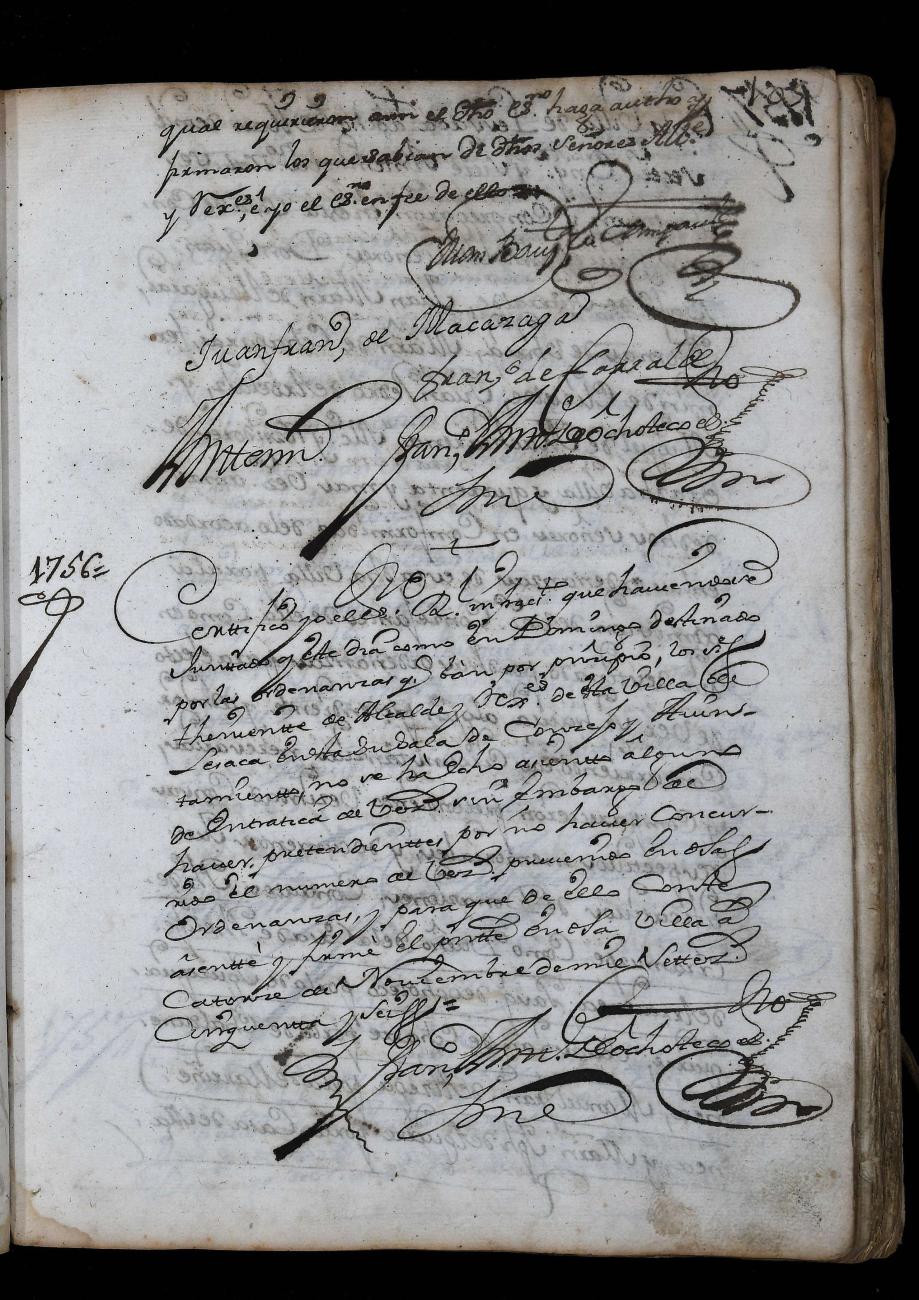 qual requirieron ami el dho es.no haga autho y
firmaron los que sabian de dhos señores Alld.e
y Rex.es, e yo el es.no en fee de ello
Juanfran.co de Macazaga
Fran.co de
Antemi Fran.co Ant.o de Ochoteco es.no
1756=
Certtifico yo el es.no R.l infrascrito que haviendose
Junttado y este dia como en Domingo destinado
por las ordenanzas q.e ban por principio, los s.res
theniente de Alcalde y Rex.es de sta Villa de
Lesaca en sta su Sala de Conzejo y Aiun-
tamiento, no se ha dho asiento alguno
de Entratica de Vez.o sin Embargo de
haver pretendientes por no haver Concur-
rido el numero de Vez.os prevenido en dhas
Ordenanzas, y para que de ello Conste
asentte y firme el pntte en sta Villa a
Catorze de Noviembre de mil Settez.os
Cinquentta y seis=
Fran.co Ant.o de Ochoteco es.no